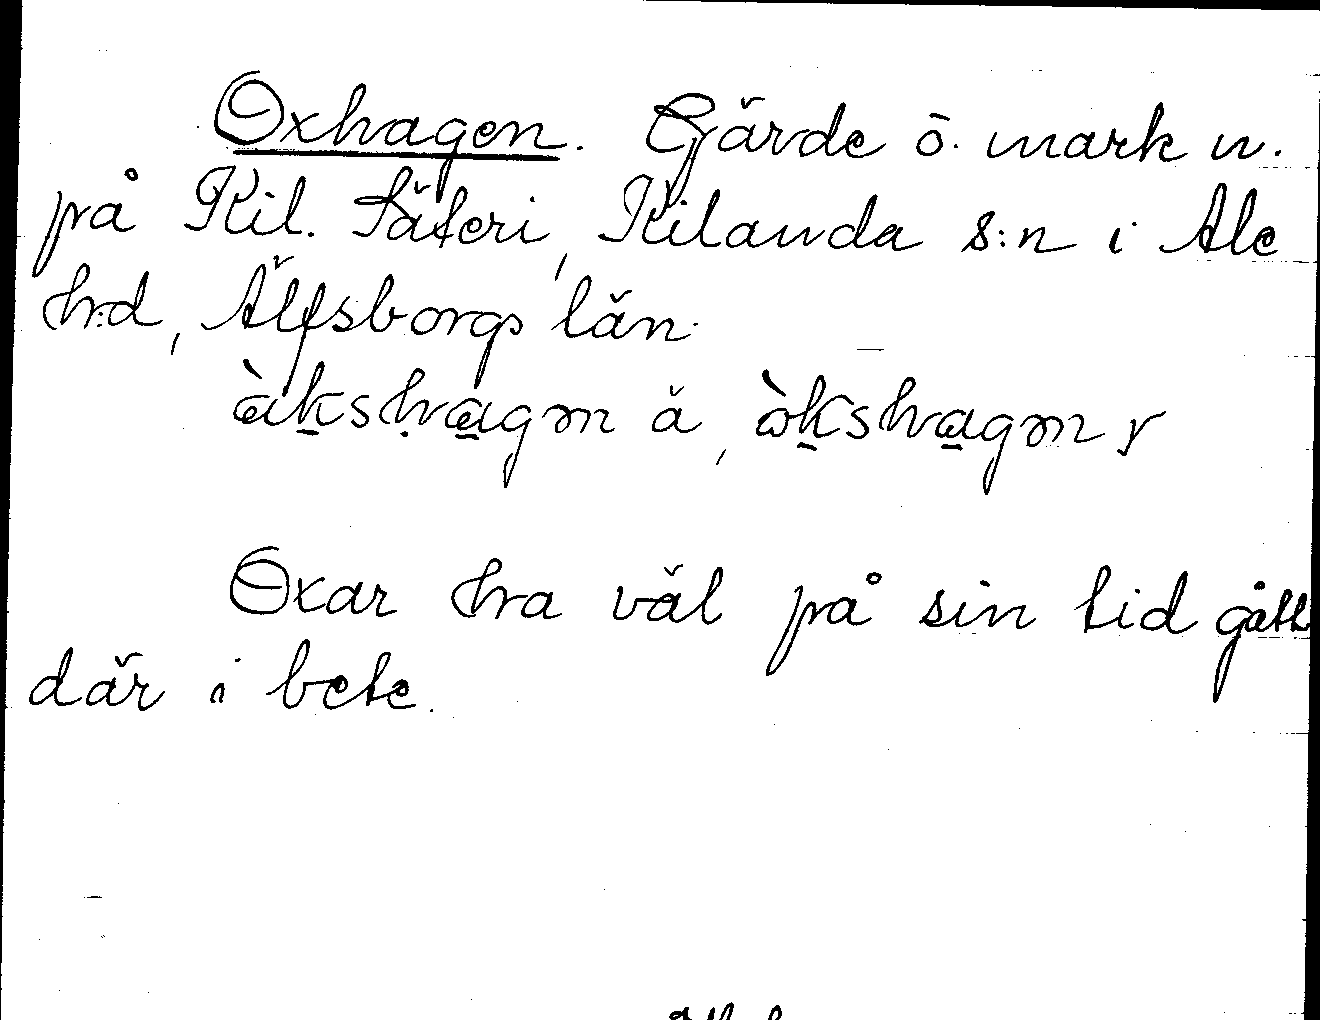 Oxhagen. Gärde ö. mark n.
på Kil. Säteri, Kilanda s:n i Ale
h:d, Älfsborgs län.
àkshagen ä, òkshagen r
Oxar ha väl på sin tid gått
där i bete.